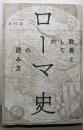 本村凌二
教養としての
ローマ史
の読み方